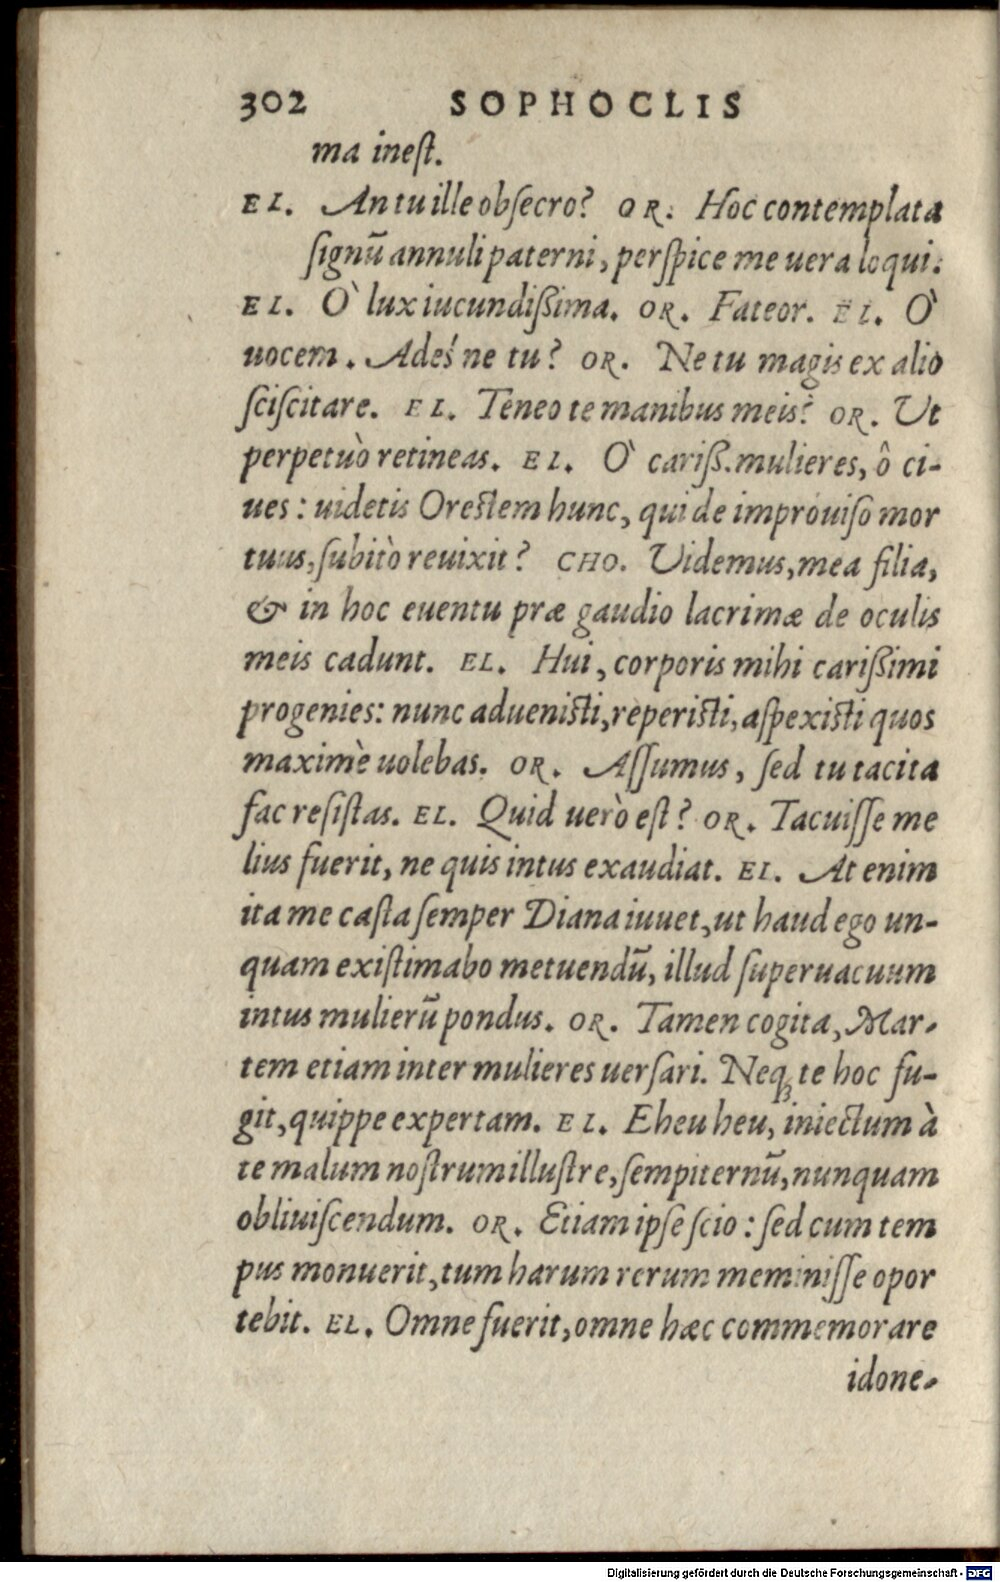 302 SOPHOCLIS
ma inest.
EL. An tu ille obsecro? OR. Hoc contemplata
signū annuli paterni, perspice me uera loqui.
EL. Ò lux iucundißima. OR. Fateor. EL. Ò
uocem. Adés ne tu? OR. Ne tu magis ex alio
sciscitare. EL. Teneo te manibus meis? OR. Ut
perpetuò retineas. EL. Ò cariß. mulieres, ô ci-
ues: uidetis Orestem hunc, qui de improuiso mor
tuus, subitò reuixit? CHO. Uidemus, mea filia,
& in hoc euentu præ gaudio lacrimæ de oculis
meis cadunt. EL. Hui, corporis mihi carißimi
progenies: nunc aduenisti, reperisti, aspexisti quos
maximè uolebas. OR. Assumus, sed tu tacita
fac resistas. EL. Quid uerò est? OR. Tacuisse me
lius fuerit, ne quis intus exaudiat. EL. At enim
ita me casta semper Diana iuuet, ut haud ego un-
quam existimabo metuendū, illud superuacuum
intus mulierū pondus. OR. Tamen cogita, Mar-
tem etiam inter mulieres uersari. Neqꝫ te hoc fu-
git, quippe expertam. EL. Eheu heu, iniectum à
te malum nostrum illustre, sempiternū, nunquam
obliuiscendum. OR. Etiam ipse scio: sed cum tem
pus monuerit, tum harum rerum meminisse opor
tebit. EL. Omne fuerit, omne hæc commemorare
idone-
Digitalisierung gefördert durch die Deutsche Forschungsgemeinschaft - DFG